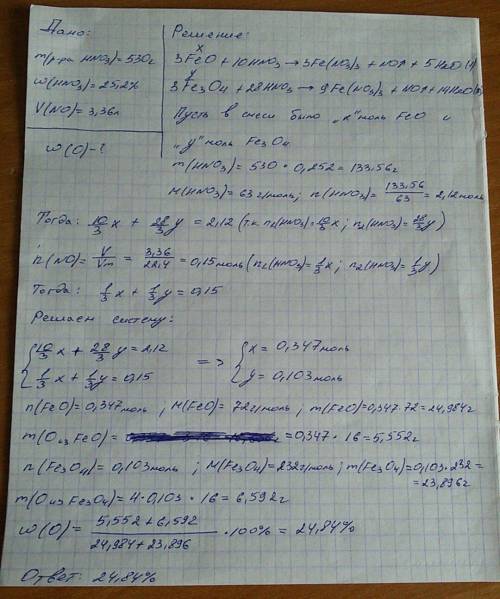 Дано:
m(р-ра HNO3)=530г
w(HNO3)=25,2%
V(NO)=3,36л
w(O)-?
Решение:
x
3FeO+10HNO3→3Fe(NO3)3+NO↑+5H2O(1)
y
3Fe3O4+28HNO3→9Fe(NO3)3+NO↑+14H2O(2)
Пусть в смеси было „x" моль FeO и
„y" моль Fe3O4
m(HNO3)=530·0,252=133,56г
M(HNO3)=63г/моль; n(HNO3)=133,56/63=2,12моль
Тогда: 10/3x + 28/3y = 2,12 (т.к n1(HNO3)=10/3x; n2(HNO3)=28/3y)
n(NO)=V/Vm=3,36/22,4=0,15моль(n1(HNO3)=1/3x; n2(HNO3)=1/3y)
Тогда: 1/3x+1/3y=0,15
Решаем систему:
{10/3x+28/3y=2,12 => {x=0,347моль
{1/3x+1/3y=0,15 {y=0,103моль
n(FeO)=0,347моль; M(FeO)=72г/моль; m(FeO)=0,347·72=24,984г
m(O из FeO)= =0,347·16=5,552г
n(Fe3O4)=0,103моль; M(Fe3O4)=232г/моль; m(Fe3O4)=0,103·232=
=23,896г
m(O из Fe3O4)=4·0,103·16=6,592г
w(O)=5,552+6,592/24,984+23,896·100%=24,84%
Ответ: 24,84%